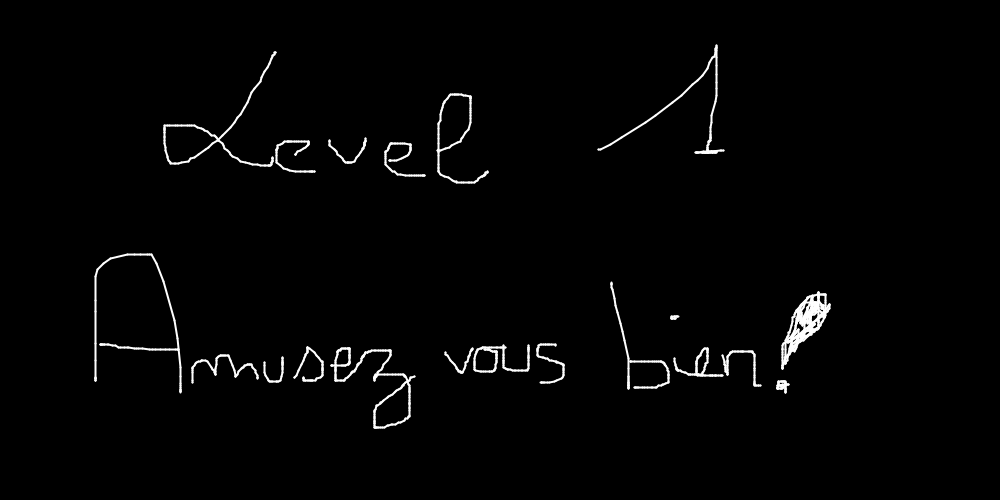 Level 1
Amusez vous bien!